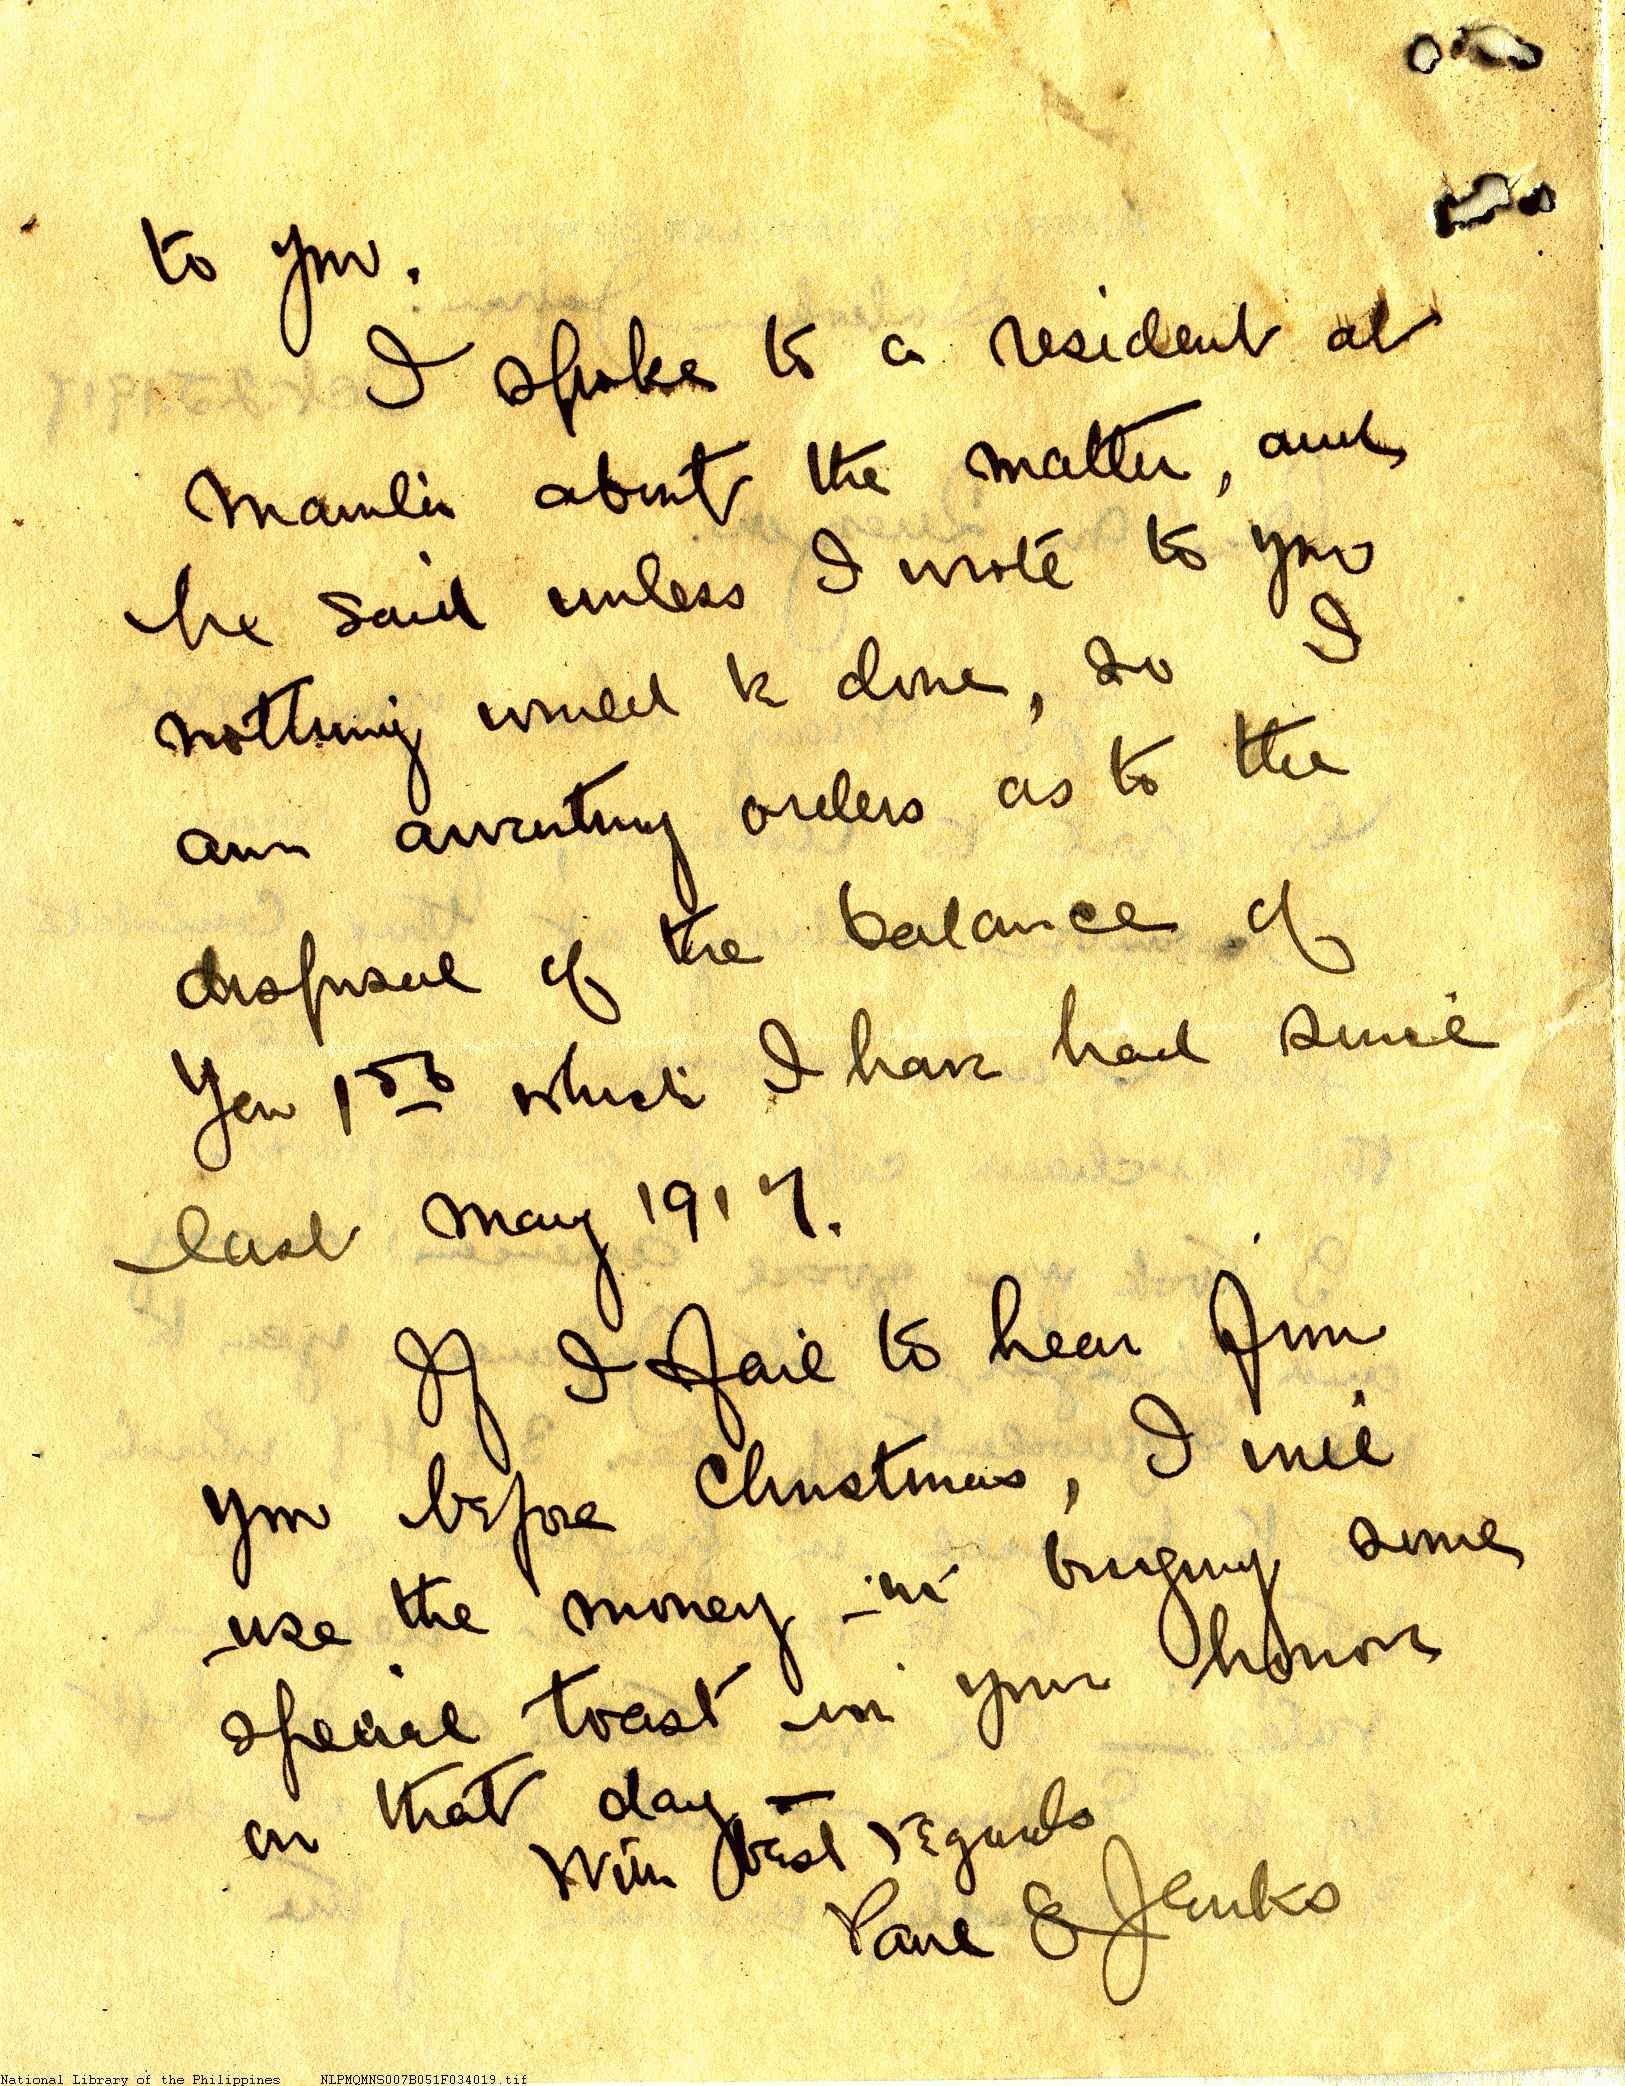 to you.
I spoke to a resident at
Manila about the matter, and
he said unless I wrote to you
nothing would be done, so I
am awaiting orders as to the
disposal of the balance of
Yen 1 50 which I have had since
last May 1917.
If I fail to hear from
you before Christmas, I will
use the money in buying some
special toast in your honor
on that day —
With best regards
Paul E Jenks
National Library of the Philippines NLPMQMNS007B051F034019.tif